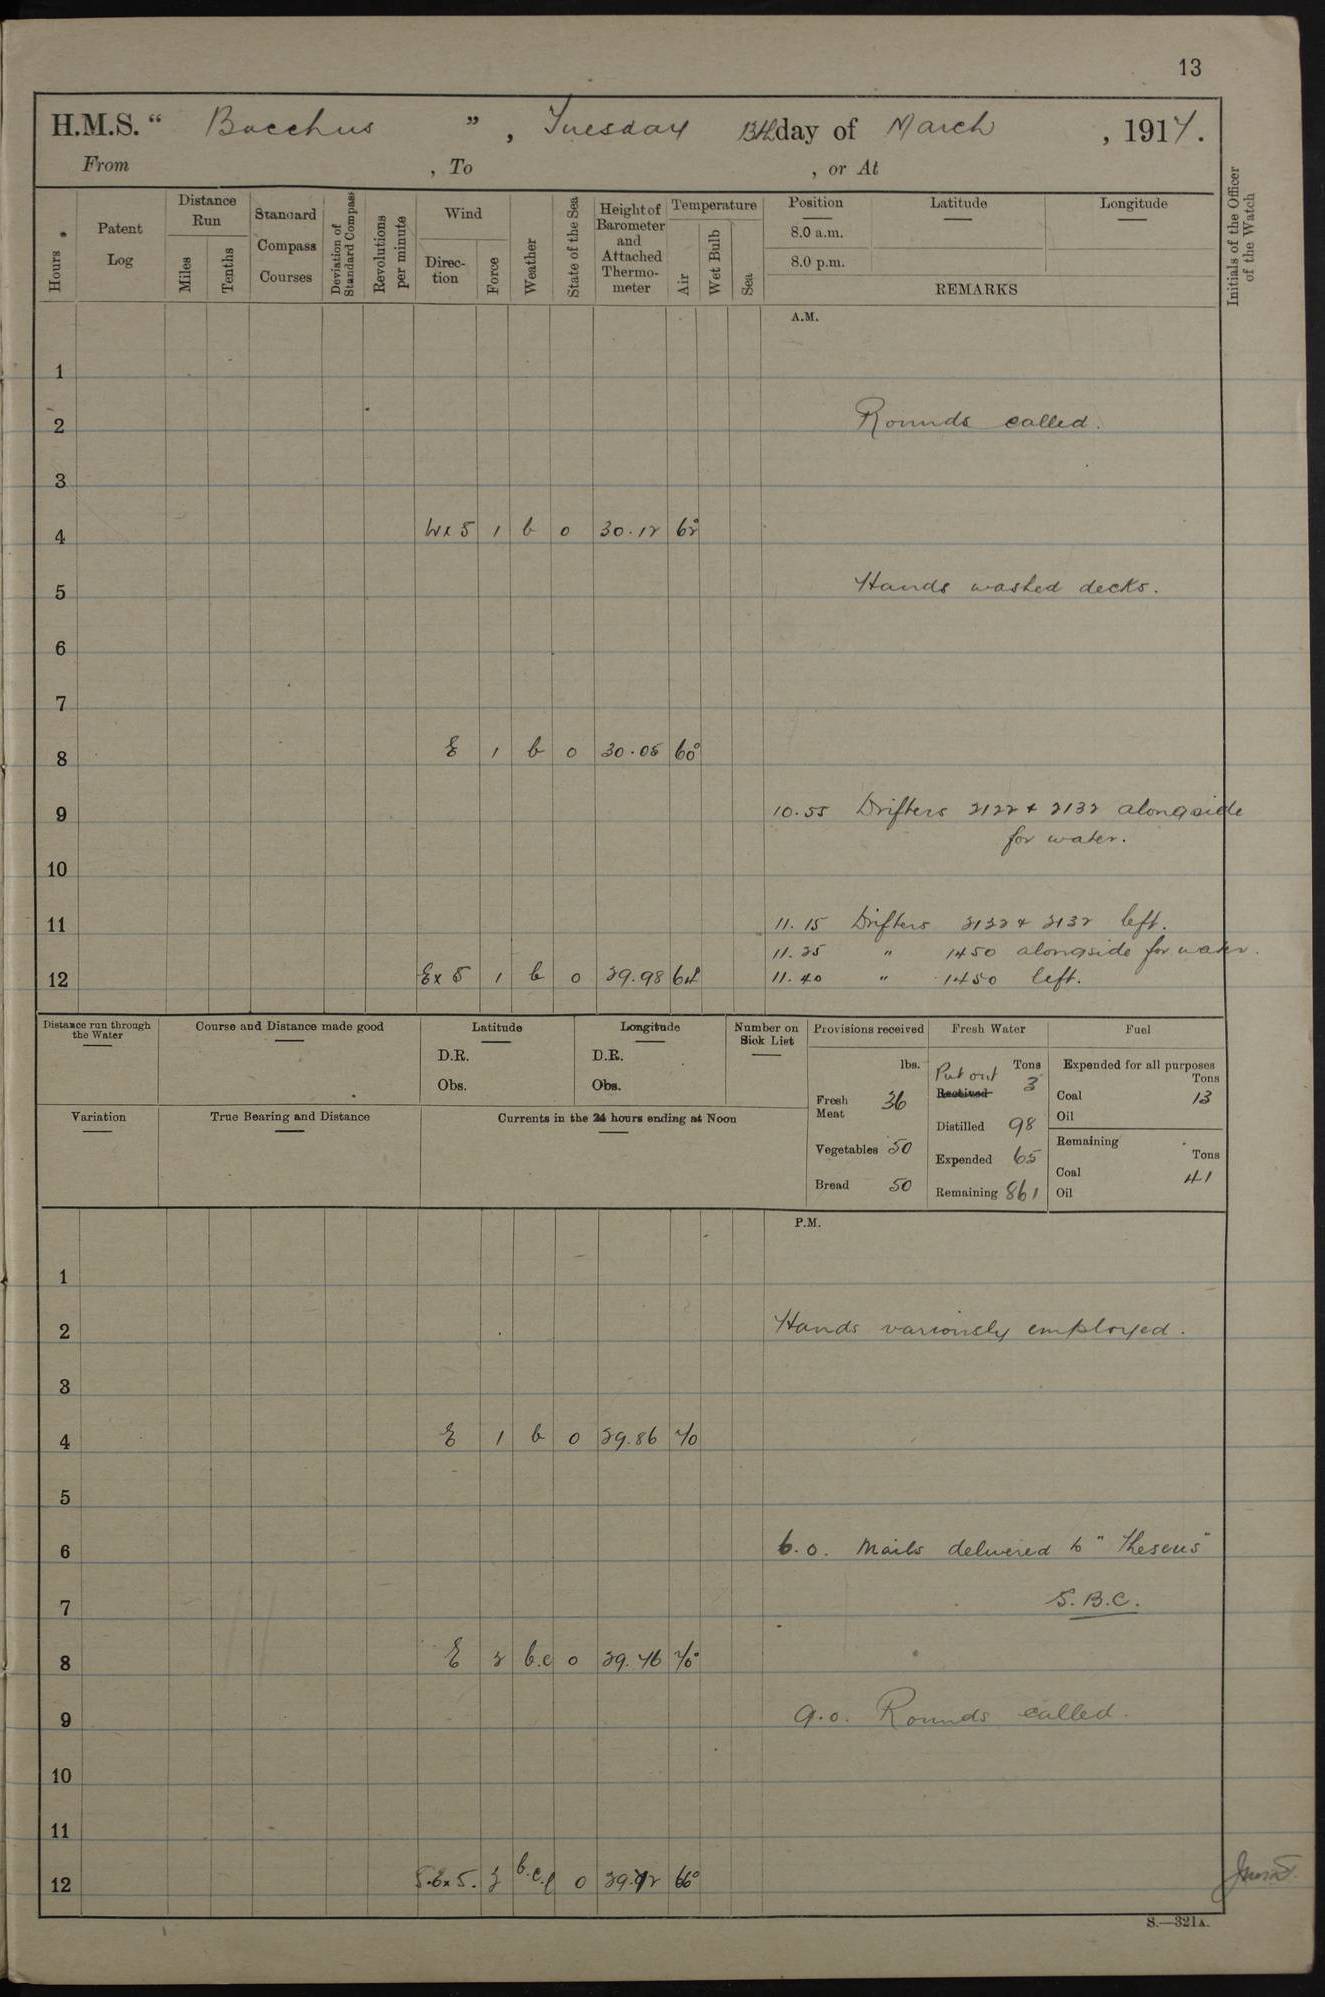 13
H.M.S. “ Bacchus ” , Tuesday 13th day of March , 1917.
From , To , or At
Hours
Patent Log
Distance Run
Miles
Tenths
Standard Compass Courses
Deviation of Standard Compass
Revolutions per minute
Wind
Direction
Force
Weather
State of the Sea
Height of Barometer and Attached Thermometer
Temperature
Air
Wet Bulb
Sea
Position
8.0 a.m.
8.0 p.m.
Latitude
Longitude
REMARKS
Initials of the Officer of the Watch
A.M.
1
2 Rounds called.
3
4 W x S 1 b 0 30.12 62°
5 Hands washed decks.
6
7
8 E 1 b 0 30.05 60°
9 10.55 Drifters 2122 + 2132 alongside
for water.
10
11 11.15 Drifters 2122 + 2132 left.
11.25 " 1450 alongside for water.
12 E x S 1 b 0 29.98 64 11.40 " 1450 left.
Distance run through the Water
Course and Distance made good
Latitude
D.R.
Obs.
Longitude
D.R.
Obs.
Number on Sick List
Provisions received
lbs.
Fresh Meat 36
Vegetables 50
Bread 50
Fresh Water
Tons
Put out 3
Received
Distilled 98
Expended 65
Remaining 861
Fuel
Expended for all purposes
Tons
Coal 13
Oil
Remaining
Tons
Coal 41
Oil
Variation
True Bearing and Distance
Currents in the 24 hours ending at Noon
P.M.
1
2 Hands variously employed.
3
4 E 1 b 0 29.86 70
5
6 6.0. Mails delivered to "Theseus"
7 S.B.C.
8 E 2 b.c 0 29.76 70°
9 9.0. Rounds called.
10
11
12 S.E x S. 3 b.c.l 0 29.72 66°
S.—321A.